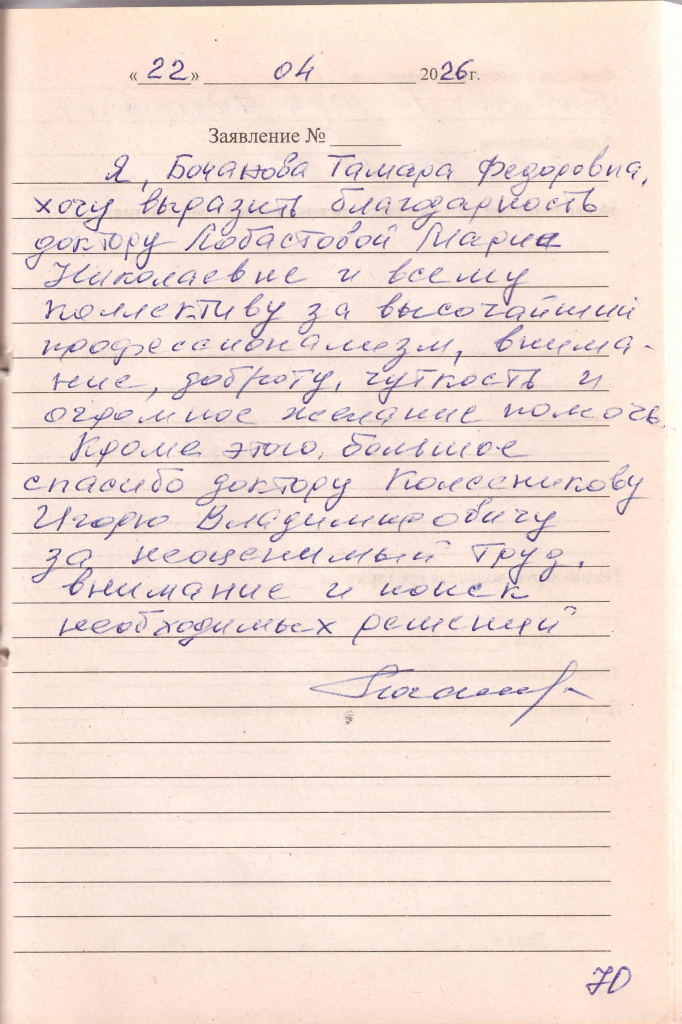 «22» 04 2026 г.
Заявление №
Я, Бочанова Тамара Федоровна,
хочу выразить благодарность
доктору Лобастовой Марие
Николаевне и всему
коллективу за высочайший
профессионализм, внима-
ние, доброту, чуткость и
огромное желание помочь.
Кроме этого, большое
спасибо доктору Колесникову
Игорю Владимировичу
за неоценимый труд,
внимание и поиск
необходимых решений
70